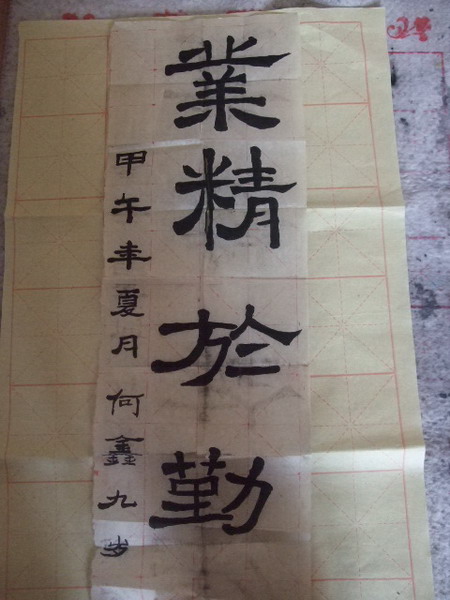 業精於勤
甲午年夏月何鑫九岁